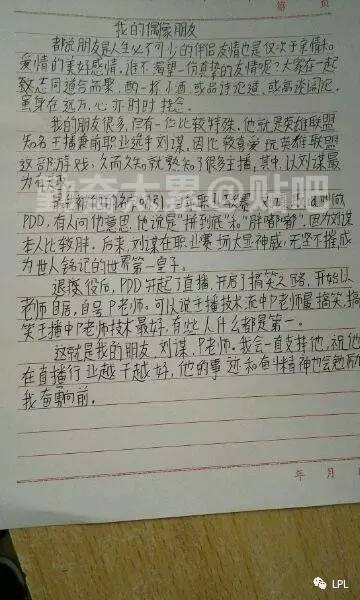 第 页
我的偶像朋友
都说朋友是人生必不可少的伴侣,友情也是仅次于亲情和
爱情的美好感情。谁不渴望一份真挚的友情呢?大家在一起
致志同道合而聚,酌一杯小酒,或品诗论道,或高谈阔论,
虽身在远方,心亦时时挂念。
我的朋友很多,但有一位比较特殊。他就是英雄联盟
知名主播兼前职业选手刘谋,因比较喜爱玩英雄联盟
这部游戏,久而久知就熟知了很多主播,其中,以刘谋最
为有
勤奋大累@贴吧
职业联赛
PDD,有人问他意思,他说是“拼到底”和“胖嘟嘟”,因为刘谋
本人比较胖。后来,刘谋在职业赛场大显神威,无坚不摧,成
为世人铭记的世界第一皇子。
退役后,PDD开起了直播,开启了搞笑之路,开始以
老师自居,自号P老师。可以说主播技术流中P老师最搞笑,搞
笑主播中P老师技术最好,有些人什么都是第一。
这就是我的朋友,刘谋,P老师。我会一直支持他,祝他
在直播行业越干越好,他的事迹和奋斗精神也会勉励
我奋勇向前。
第 页
LPL